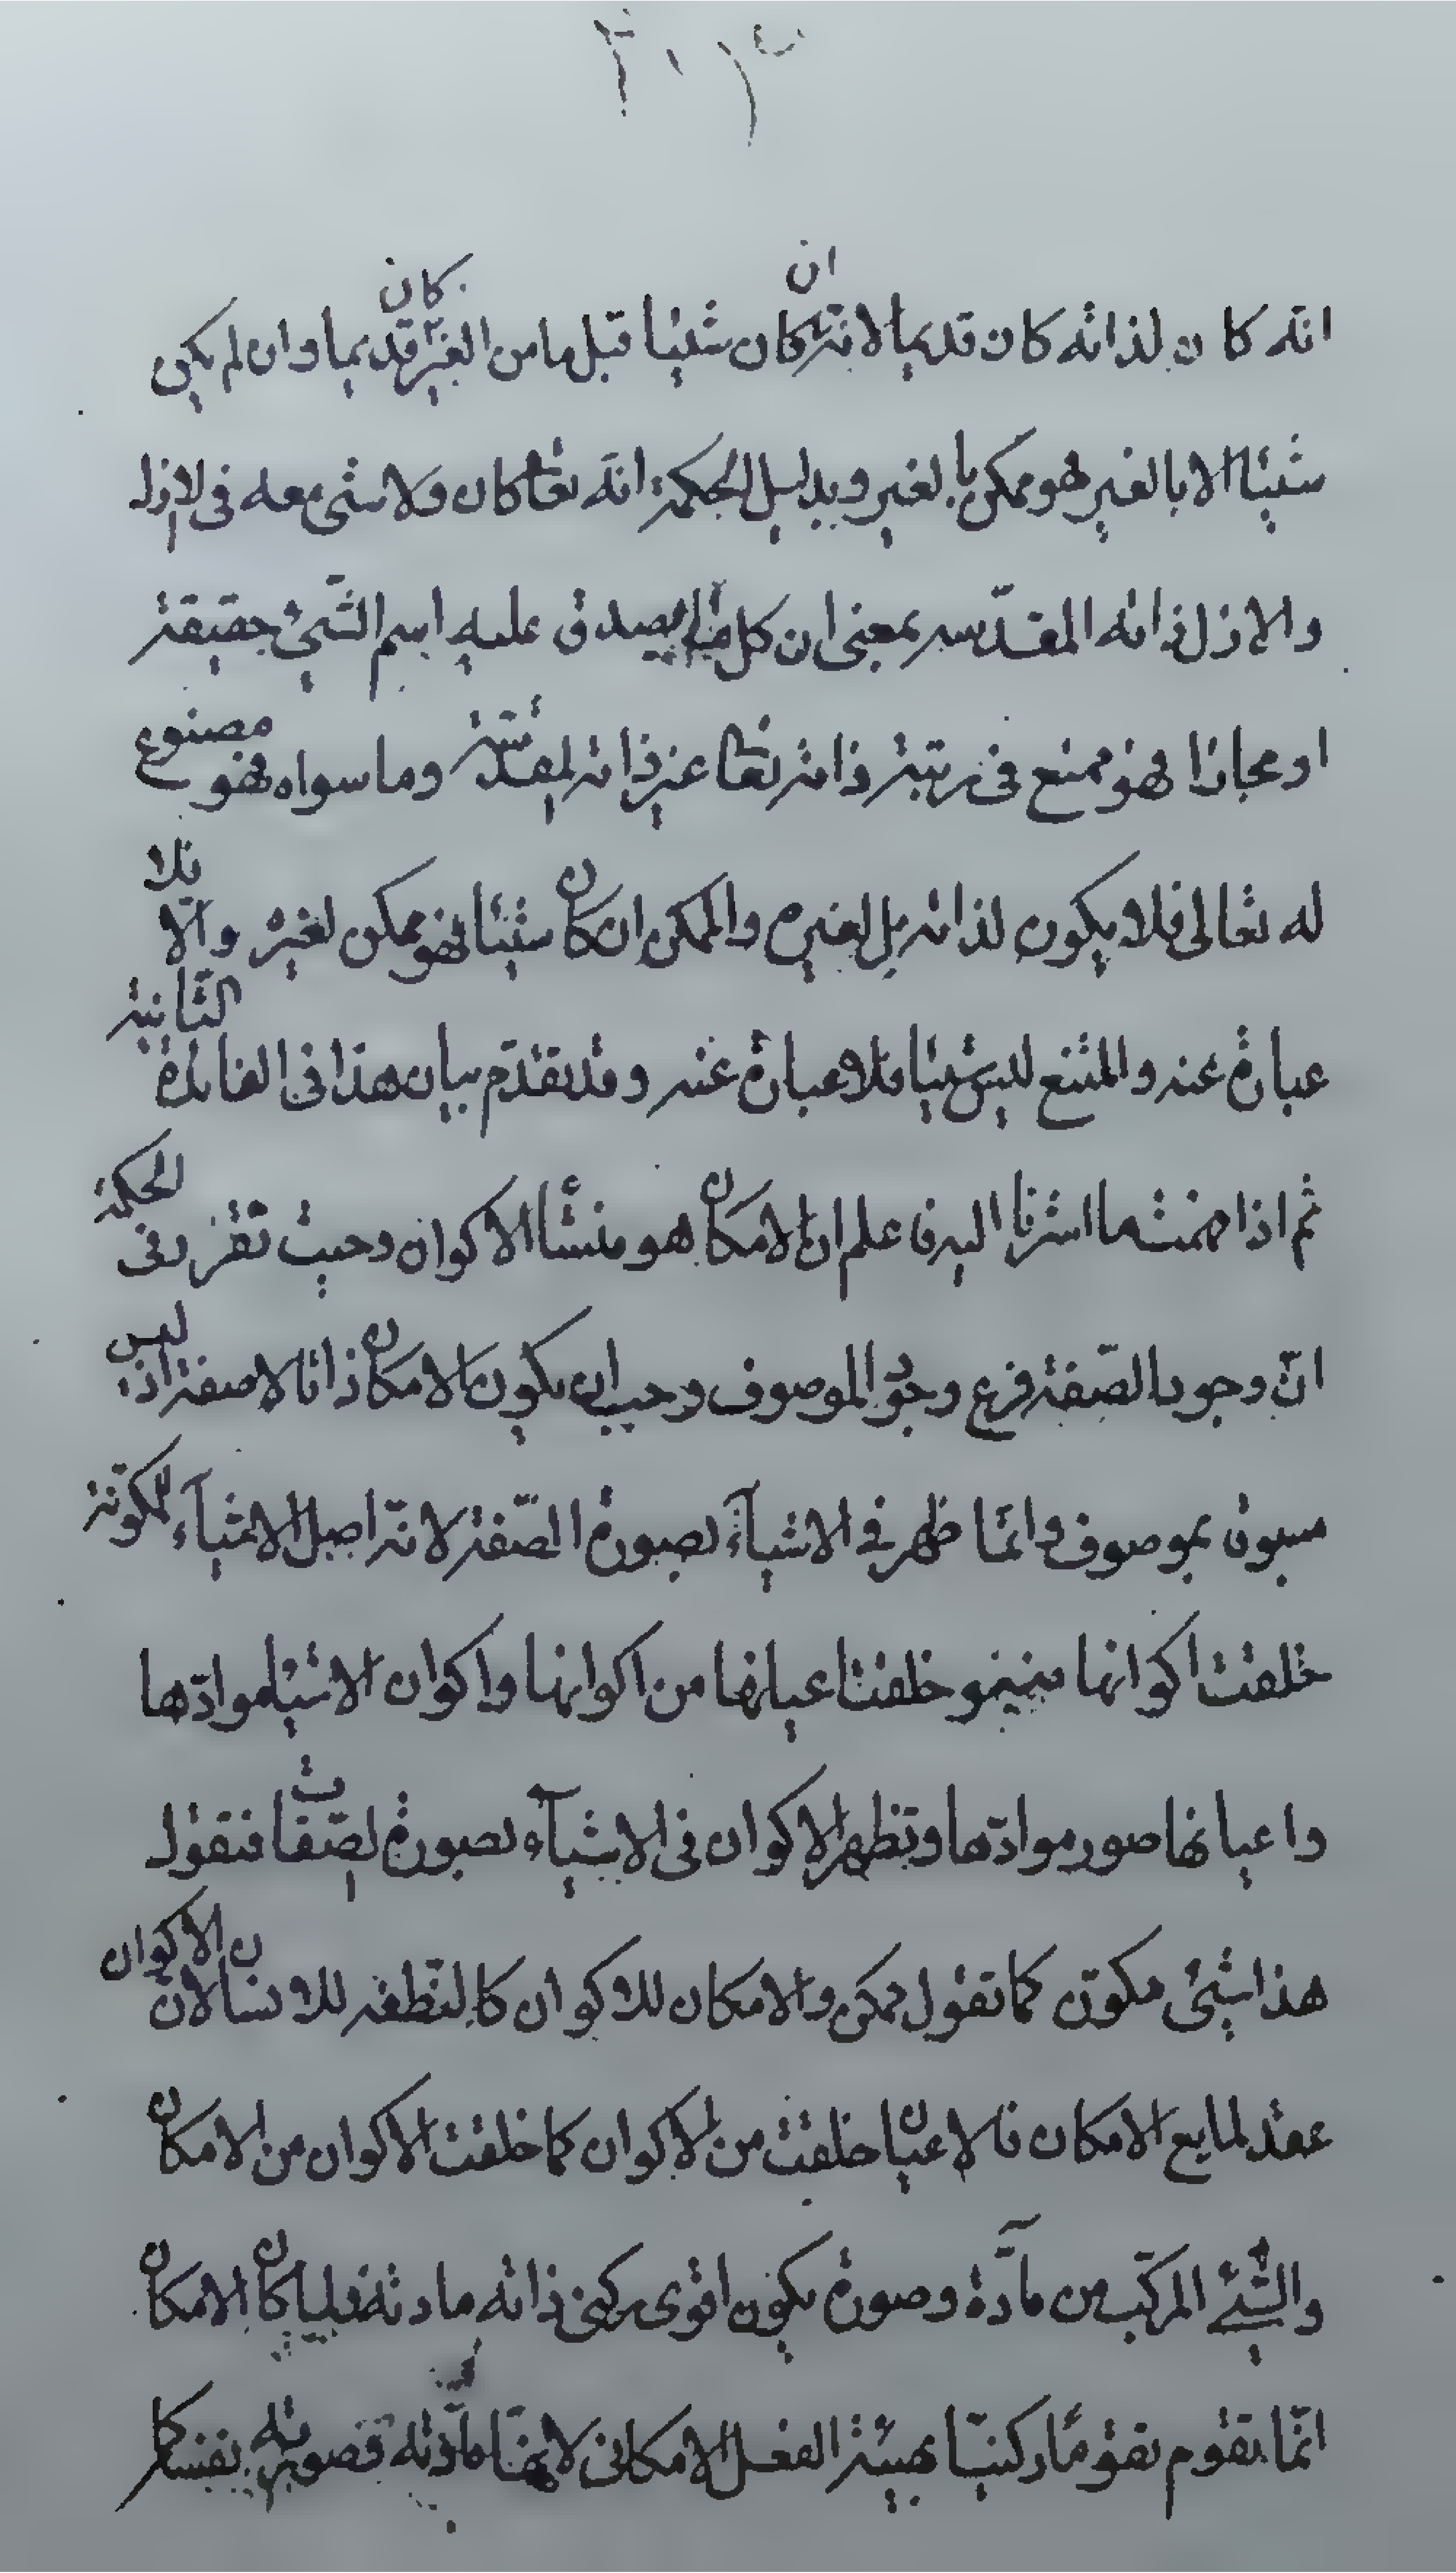 انه كان لذاته كان قديما لانه ان كان شيئا قبل ما من الغير كان قديما وان لم يكن
شيئا الا بالغير هو ممكن بالغير وبدليل الحكمة انه تعا كان ولا شئ معه فى الازل
والازل ذاته المقدّسه بمعنى ان كل ما يصدق عليه اسم الشّئ حقيقة
او مجازا فهو ممتنع فى رتبة ذاته تعا غير ذاته المقدّسة وما سواه فهو مصنوع
له تعالى فلا يكون لذاته بل لغيره والممكن ان كان شيئا فهو ممكن لغيره والا فلا
عبارة عنه والمتنع ليس شيئا فلا عبارة عنه وقد تقدّم بيان هذا فى الفائدة الثانية
ثم اذا فهمت ما اشرنا اليه فاعلم ان الامكان هو منشأ الاكوان وحيث تقرر فى الحكمة
انّ وجود الصّفة فرع وجود الموصوف وجب ان يكون الامكان ذاتا لا صفة اذ ليس
مسبوق بموصوف وانّما ظهر فى الاشيآء بصورة الصّفة لانّه اصل الاشيآء المكوّنة
خلقت اكوانها منه وخلقت اعيانها من اكوانها واكوان الاشيا موادّها
واعيانها صور موادّها وتظهر الاكوان فى الاشيآء بصورة الصّفات فنقول
هذا شئ مكوّن كما تقول ممكن والامكان للاكوان كالنّطفه للانسان لان الاكوان
عقد لمايع الامكان فالاعيان خلقت من الاكوان كما خلقت الاكوان من الامكان
والشّئ المركّب من مآدّة وصورة يكون اقوى ركنى ذاته مادته فلما كان الامكان
انّما تقوم تقوّما ركنيّا بهيئة الفعل الامكانى لانها مآدّته وصورته بنفسه كا